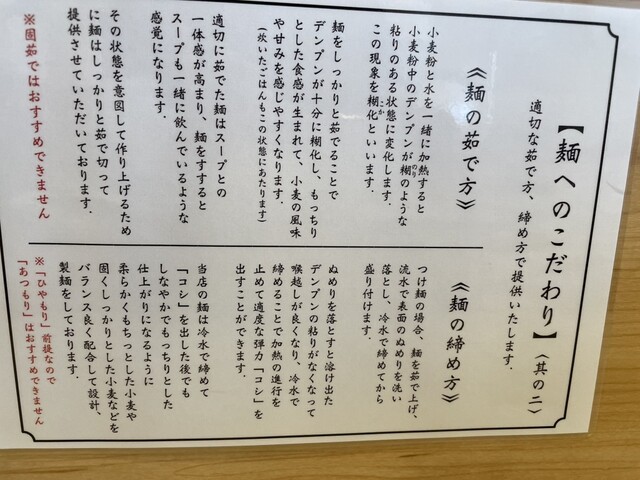 【麺へのこだわり】〈其の二〉
適切な茹で方、締め方で提供いたします．
《麺の茹で方》
小麦粉と水を一緒に加熱すると
小麦粉中のデンプンが糊のような
のり
粘りのある状態に変化します．
この現象を糊化といいます．
こか
麺をしっかりと茹でることで
デンプンが十分に糊化し、もっちり
とした食感が生まれて、小麦の風味
やせみを感じやすくなります．
(炊いたごはんもこの状態にあたります)
適切に茹でた麺はスープとの
一体感が高まり、麺をすすると
スープも一緒に飲んでいるような
感覚になります．
その状態を意図して作り上げるため
に麺はしっかりと茹で切って
提供させていただいております．
※固茹ではおすすめできません
《麺の締め方》
つけ麺の場合、麺を茹で上げ、
流水で表面のぬめりを洗い
落とし、冷水で締めてから
盛り付けます．
ぬめりを落とすと溶け出た
デンプンの粘りがなくなって
喉越しが良くなり、冷水で
締めることで加熱の進行を
止めて適度な弾力「コシ」を
出すことができます．
当店の麺は冷水で締めて
「コシ」を出した後でも
しなやかでもっちりとした
仕上がりになるように
柔らかくもちっとした小麦や
固くしっかりとした小麦などを
バランス良く配合して設計、
製麺をしております．
※「ひやもり」前提なので
「あつもり」はおすすめできません